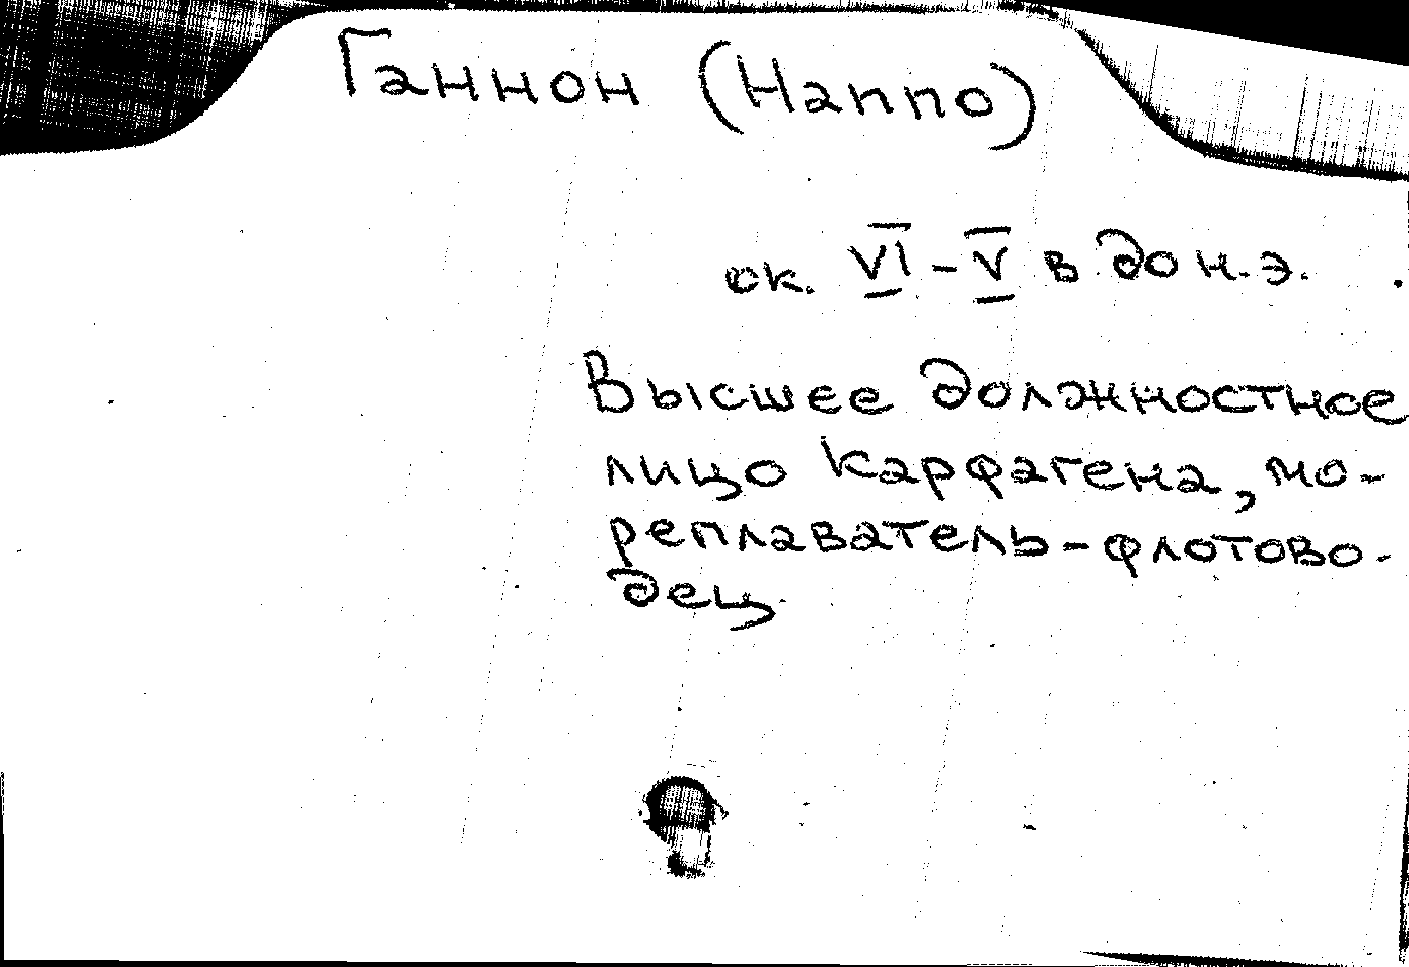 Ганнон (Hanno)
ок. VI - V в до н.э.
Высшее должностное
лицо Карфагена, мо-
реплаватель-флотово-
дец